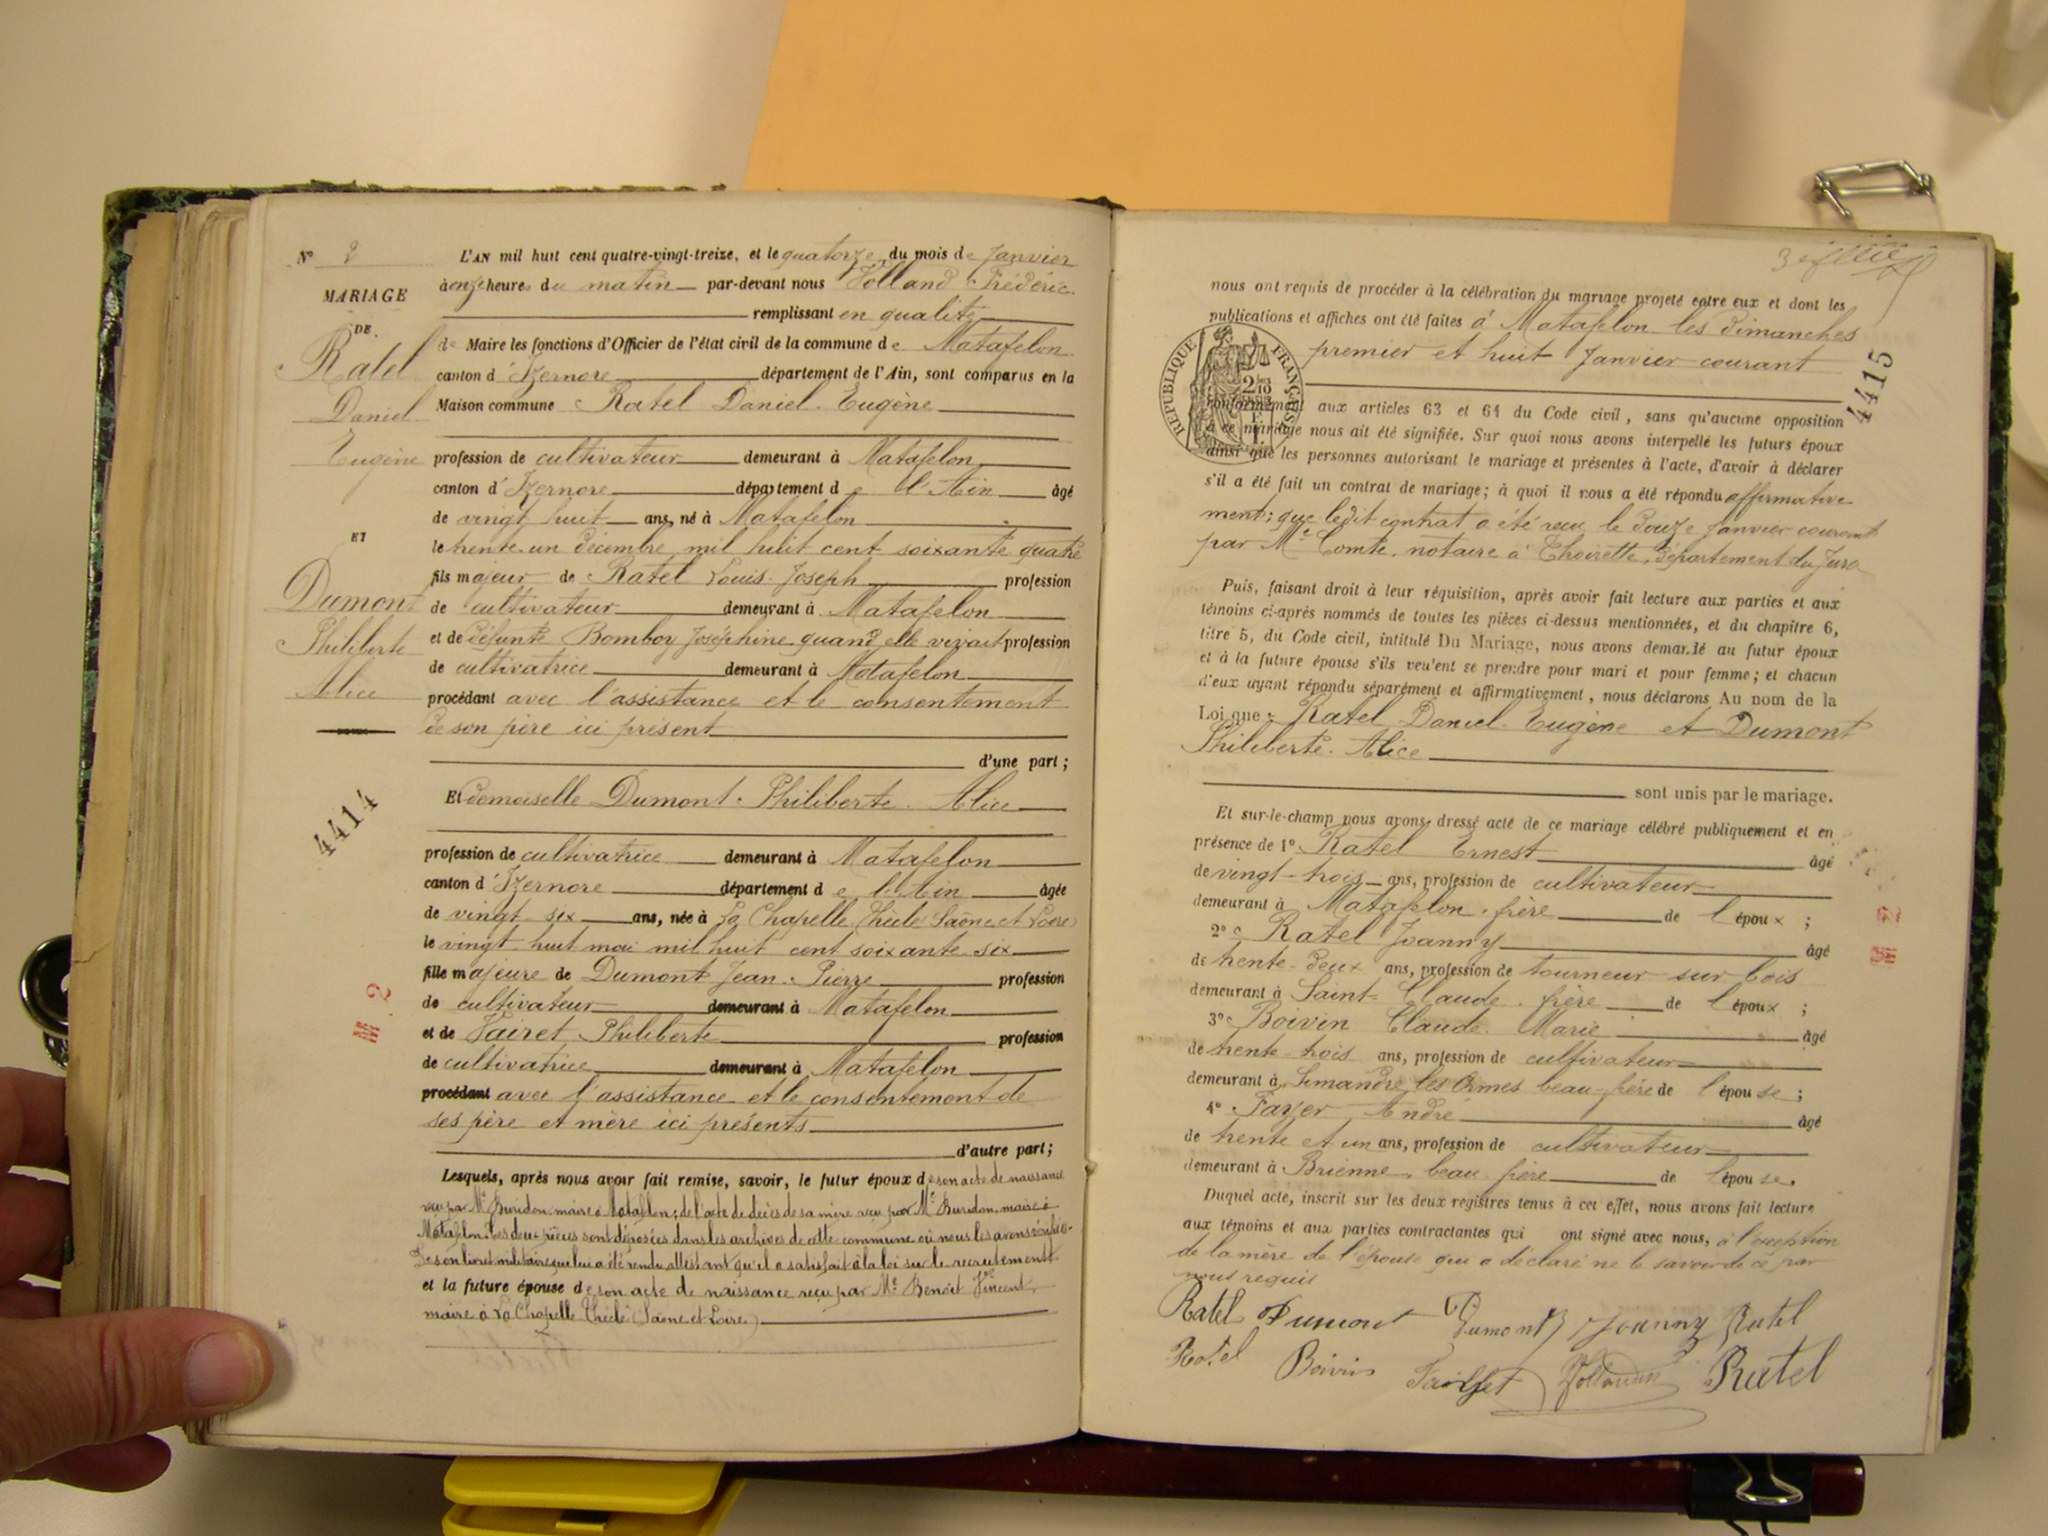 N° 2
MARIAGE
DE
Ratel
Daniel
Eugène
ET
Dumont
Philiberte
Alice
4414
M. 2
L'AN mil huit cent quatre-vingt-treize, et le quatorze du mois de Janvier
à onze heures du matin par-devant nous Volland Frédéric
remplissant en qualité
de Maire les fonctions d'Officier de l'état civil de la commune de Matafelon
canton d'Izernore département de l'Ain, sont comparus en la
Maison commune Ratel Daniel Eugène
profession de cultivateur demeurant à Matafelon
canton d'Izernore département de l'Ain âgé
de vingt huit ans, né à Matafelon
le trente un décembre mil huit cent soixante quatre
fils majeur de Ratel Louis Joseph profession
de cultivateur demeurant à Matafelon
et de défunte Bomboy Joséphine quand elle vivait profession
de cultivatrice demeurant à Matafelon
procédant avec l'assistance et le consentement
de son père ici présent
d'une part ;
Et demoiselle Dumont Philiberte Alice
profession de cultivatrice demeurant à Matafelon
canton d'Izernore département de l'Ain âgée
de vingt six ans, née à La Chapelle Thècle (Saône et Loire)
le vingt huit mai mil huit cent soixante six
fille majeure de Dumont Jean Pierre profession
de cultivateur demeurant à Matafelon
et de Vairet Philiberte profession
de cultivatrice demeurant à Matafelon
procédant avec l'assistance et le consentement de
ses père et mère ici présents
d'autre part ;
Lesquels, après nous avoir fait remise, savoir, le futur époux de son acte de naissance
reçu par Mr Buridon, maire à Matafelon ; de l'acte de décès de sa mère reçu par Mr Buridon, maire à
Matafelon. Ces deux pièces sont déposées dans les archives de cette commune où nous les avons
De son livret militaire qui lui a été rendu attestant qu'il a satisfait à la loi sur le recrutement
et la future épouse de son acte de naissance reçu par Mr Benoit Vincent
maire à La Chapelle Thècle (Saône et Loire)
nous ont requis de procéder à la célébration du mariage projeté entre eux et dont les
publications et affiches ont été faites à Matafelon les dimanches
premier et huit Janvier courant
RÉPUBLIQUE FRANÇAISE
4415
conformément aux articles 63 et 64 du Code civil, sans qu'aucune opposition
à ce mariage nous ait été signifiée. Sur quoi nous avons interpellé les futurs époux
ainsi que les personnes autorisant le mariage et présentes à l'acte, d'avoir à déclarer
s'il a été fait un contrat de mariage ; à quoi il nous a été répondu affirmative
ment : que ledit contrat a été reçu le douze Janvier courant
par Me Comte, notaire à Thoirette, département du Jura
Puis, faisant droit à leur réquisition, après avoir fait lecture aux parties et aux
témoins ci-après nommés de toutes les pièces ci-dessus mentionnées, et du chapitre 6,
titre 5, du Code civil, intitulé Du Mariage, nous avons demandé au futur époux
et à la future épouse s'ils veulent se prendre pour mari et pour femme ; et chacun
d'eux ayant répondu séparément et affirmativement, nous déclarons Au nom de la
Loi que : Ratel Daniel Eugène et Dumont
Philiberte Alice
sont unis par le mariage.
Et sur-le-champ nous avons dressé acte de ce mariage célébré publiquement et en
présence de 1° Ratel Ernest âgé
de vingt-trois ans, profession de cultivateur
demeurant à Matafelon, frère de l'époux ;
2° Ratel Joanny âgé
de trente-deux ans, profession de tourneur sur bois
demeurant à Saint-Claude, frère de l'époux ;
3° Boivin Claude Marie âgé
de trente-trois ans, profession de cultivateur
demeurant à Simandre les Ormes beau-frère de l'épouse ;
4° Fayer André âgé
de trente et un ans, profession de cultivateur
demeurant à Brienne, beau-frère de l'épouse.
M. 2
Duquel acte, inscrit sur les deux registres tenus à cet effet, nous avons fait lecture
aux témoins et aux parties contractantes qui ont signé avec nous, à l'exception
de la mère de l'épouse qui a déclaré ne le savoir de ce par
nous requis
Ratel Dumont Dumont Joanny Ratel
Ratel Boivin Volland Ratel